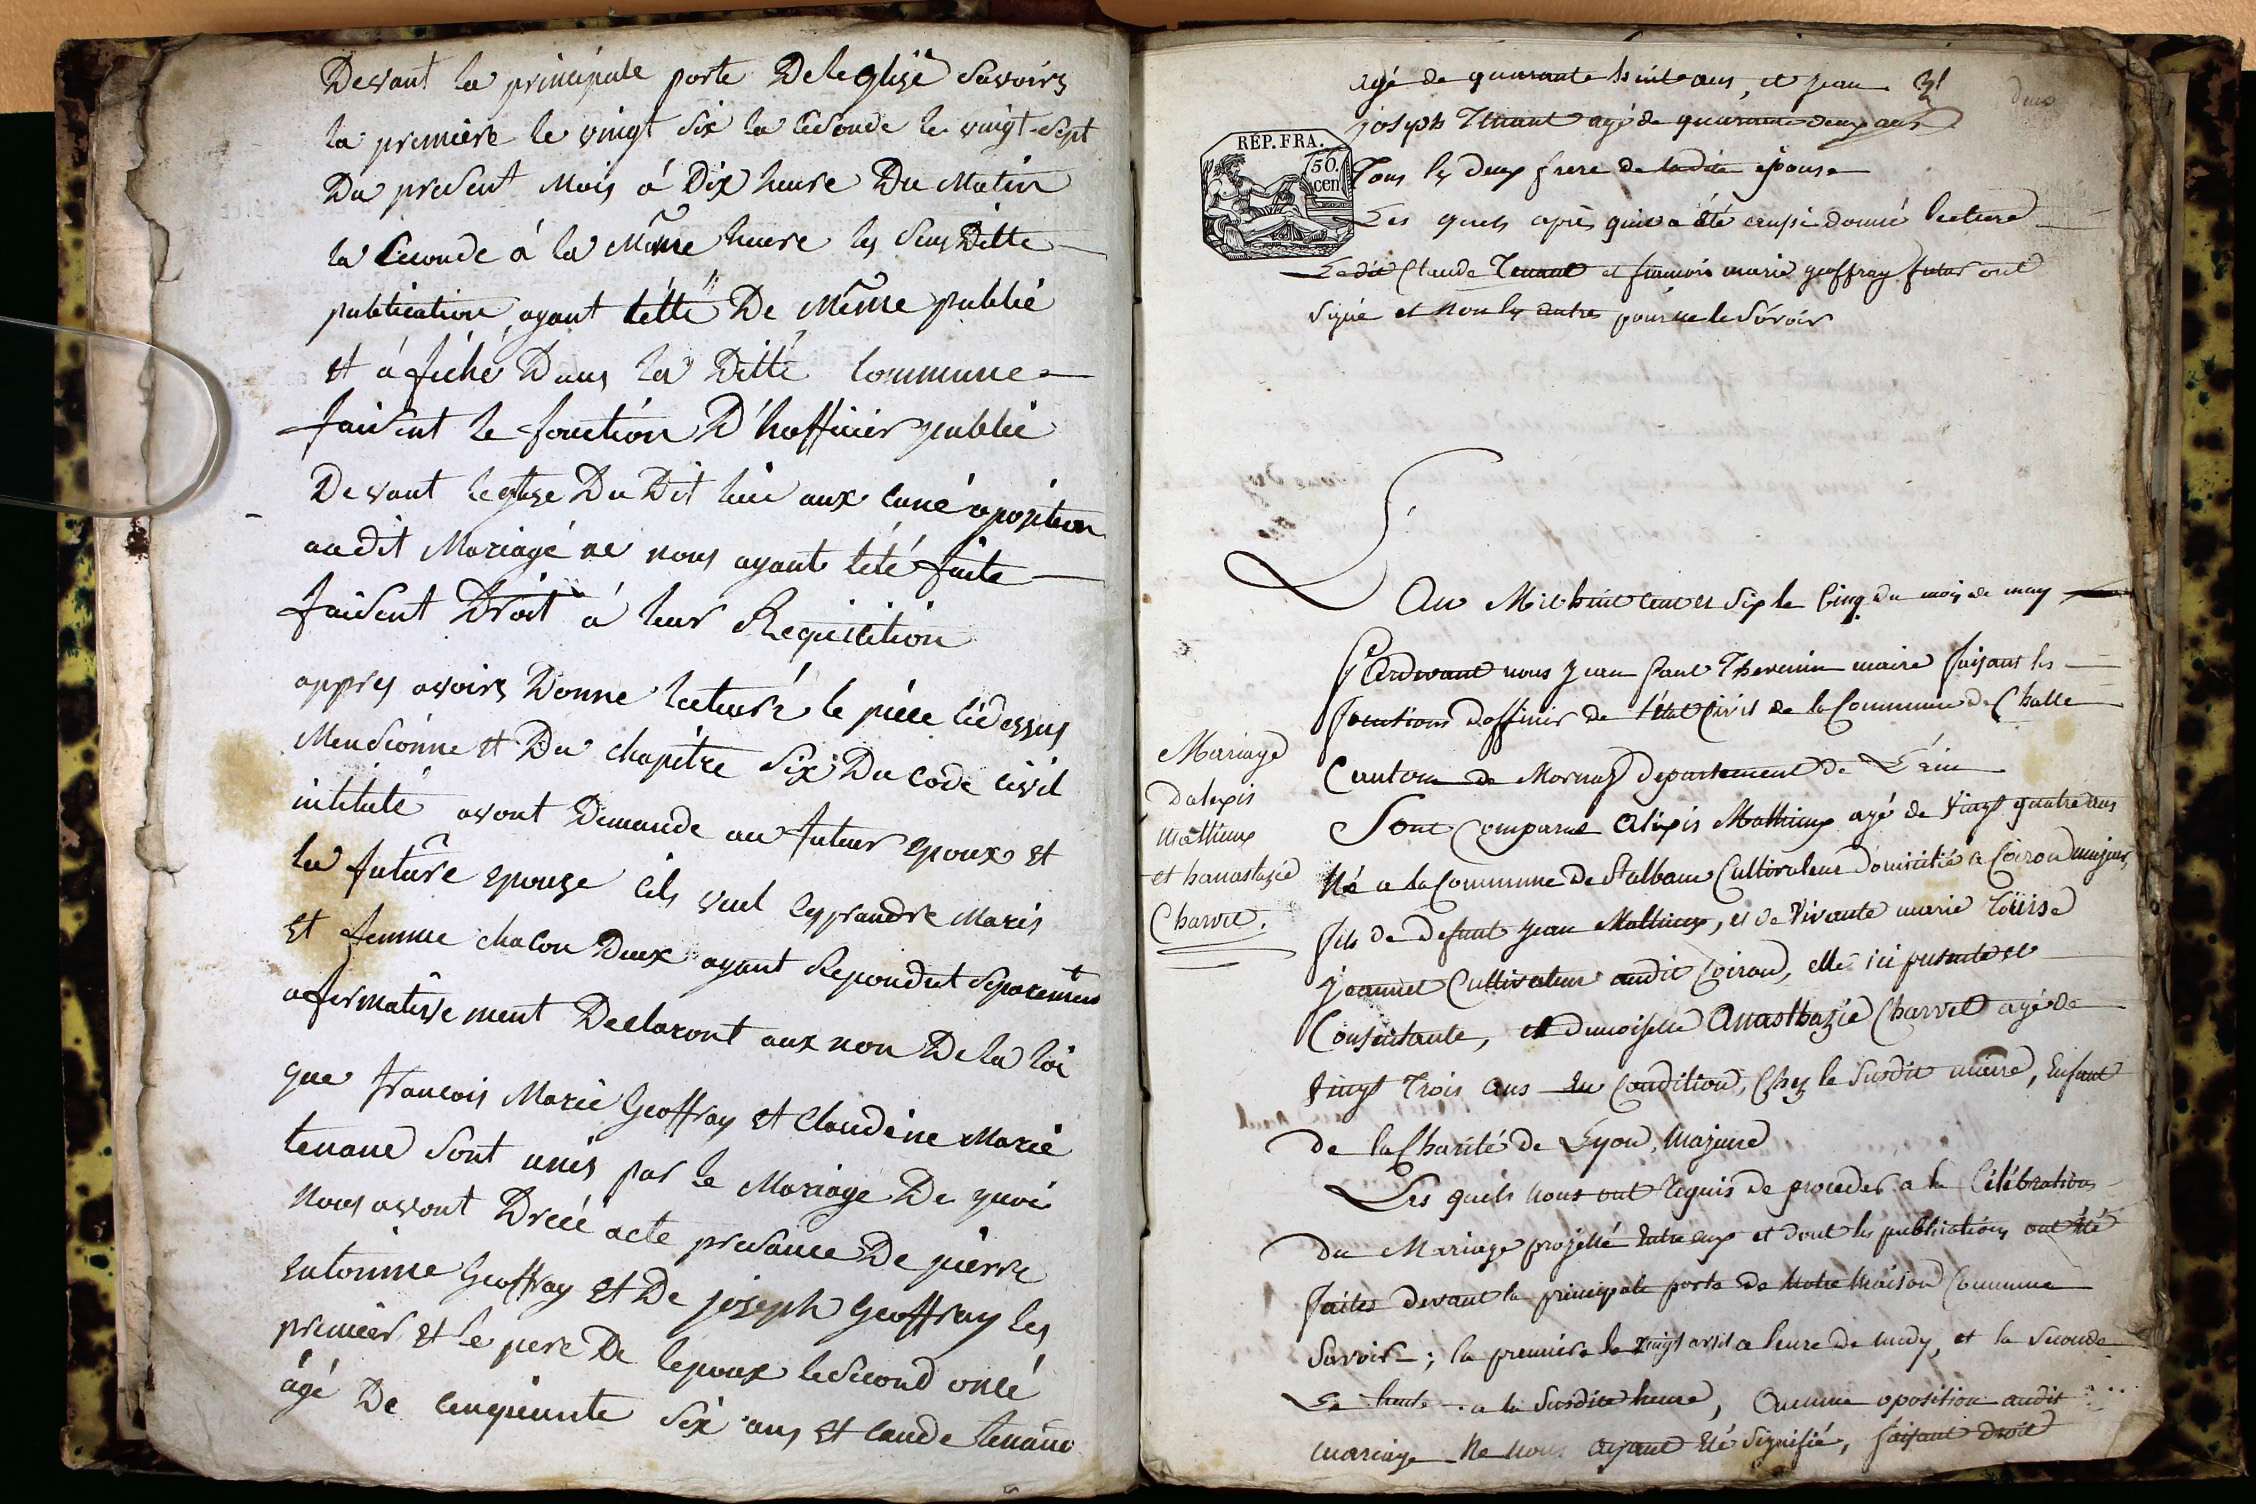 Devant la principale porte De leglise savoirs
la premiere le vingt six la cesonde le vingt-sept
Du present Mois á Dix heure Du Matin
la ceconde á la Même heure les sus Ditte
publication, ayant tétté De Même publié
et áfiché Dans la Ditté Commune
faisent le fonction D'hofficier publié
Devant leglise Du Dit lieu aux cune oposition
audit Mariagé ne nous ayant tété faite
faisent Droit á leur Requisition
appres avoirs Donne lecture le piéce cidessus
Mensionne et Du chapitre six Du code civil
intitulé avont Demande au futeur epoux et
la future epouse cils veul ceprandre Maris
et femme chacon Deux ayant Repondut separement
afirmative ment Declaront aux non De la loi
que francois Marie Geoffray et Claudine Marie
tenane sont unis par le Mariage De quoi
nous avont Drécé acte presance De pierre
entonine Geoffray et De joseph Geoffray les
premier et le pere De lepoux lesecond oncé
âgé De cenquiante six ans et caude tenane
agé de quarante huit ans, et jean 31
joseph Tenant agé de quarante deux ans
REP. FRA.
50 cen
Tous les deux frere de ladite épouse
Les quels après quil a été aussi donné lecture
Ledit Claude Tenant et francois marie geoffray futur ont
signé et non les autres pour ne le sçavoir
L'An Mil huit cent et six le Cinq du mois de may
Pardevant nous Jean Paul Thevenin maire faisant les
fonctions dofficier de l'état Civil de la Commune de Challe
Canton de Mornay departement de L'ain
Mariage
Dalexis
Mathieux
et hanastazie
Charvet.
Sont Comparut Alexis Mathieux agé de vingt quatre ans
Né a la Commune de St alban Cultivateur domicilié a Coiron majeur,
fils de defunt jean Mathieux, et de Vivante marie Loüise
Jeannet Cultivateur audit Coiron, elle ici presente et
Consentante, et demoiselle Anasthazie Charvet agé de
Vingt Trois ans en Condition, Chez le Susdit maire, Enfant
de la Charité de Lyon, Majeure
Les quels nous ont requis de proceder a la Célébration
du Mariage projetté entre eux et dont les publications ont été
faites devant la principale porte de notre Maison Commune
Savoir; la premiere le vingt avril a leure de midy, et la seconde
a la Susdite heure, Aucune oposition audit
mariage ne nous ayant été signifié, faisant droit